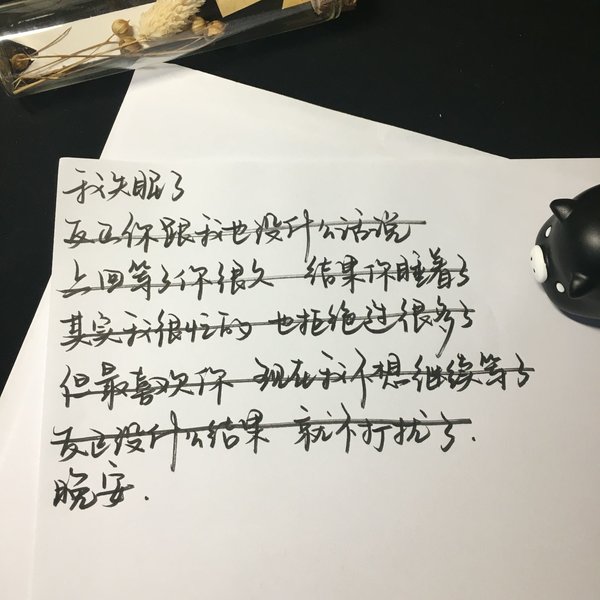 我失眠了
反正你跟我也没什么话说
上回等了你很久 结果你睡着了
其实我很忙的 也拒绝过很多了
但最喜欢你 现在我不想继续等了
反正没什么结果 就不打扰了.
晚安.